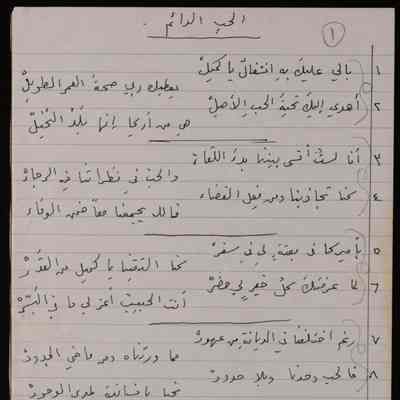 الحب الدائم
١
١ بالي عليك به انشغال يا كميل
يعطيك ربي صحة العمر الطويل
٢ أهدي إليك تحية الحب الأصيل
هي من أريحا إنها بلد النخيل
٣ أنا لست أنسى بيننا بدء اللقاء
والحب في نظراتنا فيه الرجاء
٤ كنا تجاذبنا ومن فعل القضاء
فالله يجمعنا معا ضمن الوفاء
٥ بأميركا في بعثة لي في سفر
كنا التقينا يا كميل من القدر
٦ لما عرفتك كل خير لي حضر
أنت الحبيب أعز لي ما في البشر
٧ رغم اختلفنا في الديانة من عهود
مما ورثناه ومن ماضي الجدود
٨ فالحب وحدنا وبلا حدود
كنا بإنسانية لمدى الوجود